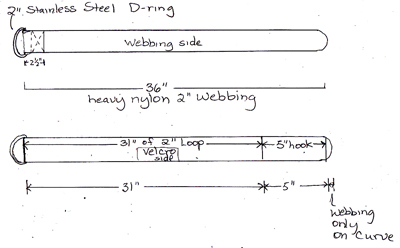 2" Stainless Steel D-ring
Webbing side
2½"
36"
heavy nylon 2" webbing
31" of 2" Loop
Velcro
side
5" hook
31"
5"
Webbing
only
on curve